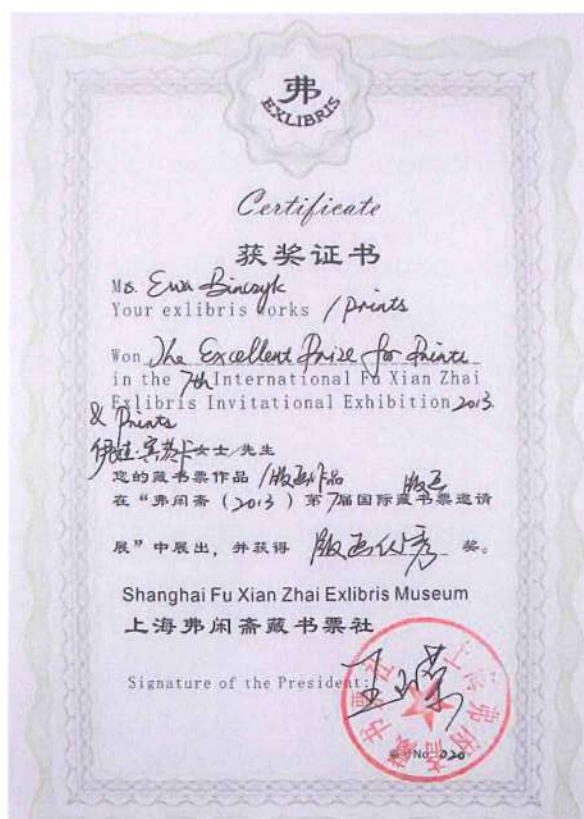 弗
EXLIBRIS
Certificate
获奖证书
Ms. Ewa Binczyk
Your exlibris works / prints
Won The Excellent Prize for Prints
in the 7th International Fu Xian Zhai
Exlibris Invitational Exhibition 2013.
& Prints
伊娃·宾茨卡女士/先生
您的藏书票作品/版画作品
版画
在“弗闲斋（2013）第7届国际藏书票邀请
展”中展出，并获得 版画优秀 奖。
Shanghai Fu Xian Zhai Exlibris Museum
上海弗闲斋藏书票社
Signature of the President:
上海弗闲斋藏书票社
No. 020